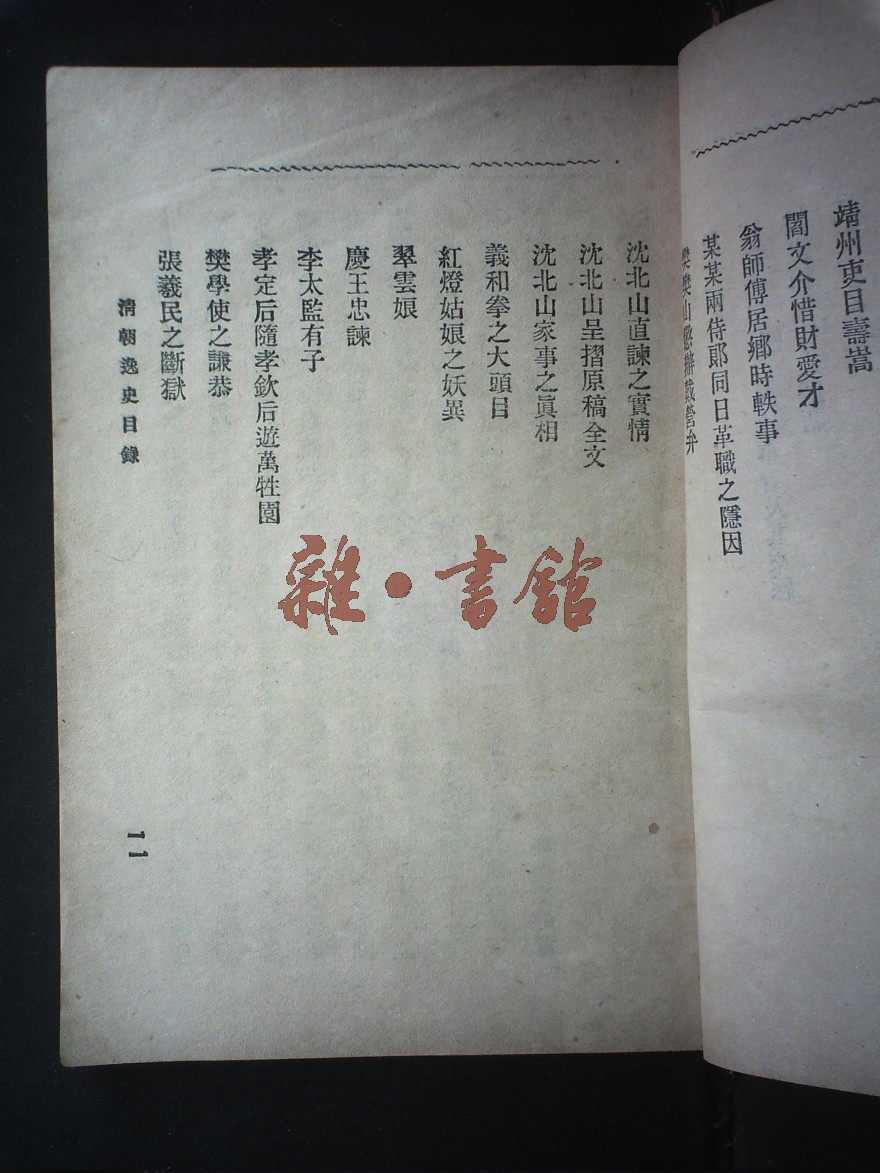 靖州吏目壽嵩
閻文介惜財愛才
翁師傅居鄉時軼事
某某兩侍郞同日革職之隱因
樊樊山懲辦戴營弁
沈北山直諫之實情
沈北山呈摺原稿全文
沈北山家事之眞相
義和拳之大頭目
紅燈姑娘之妖異
翠雲娘
慶王忠諫
李太監有子
孝定后隨孝欽后遊萬牲園
樊學使之謙恭
張羲民之斷獄
淸朝逸史目錄
一一
雜·書館